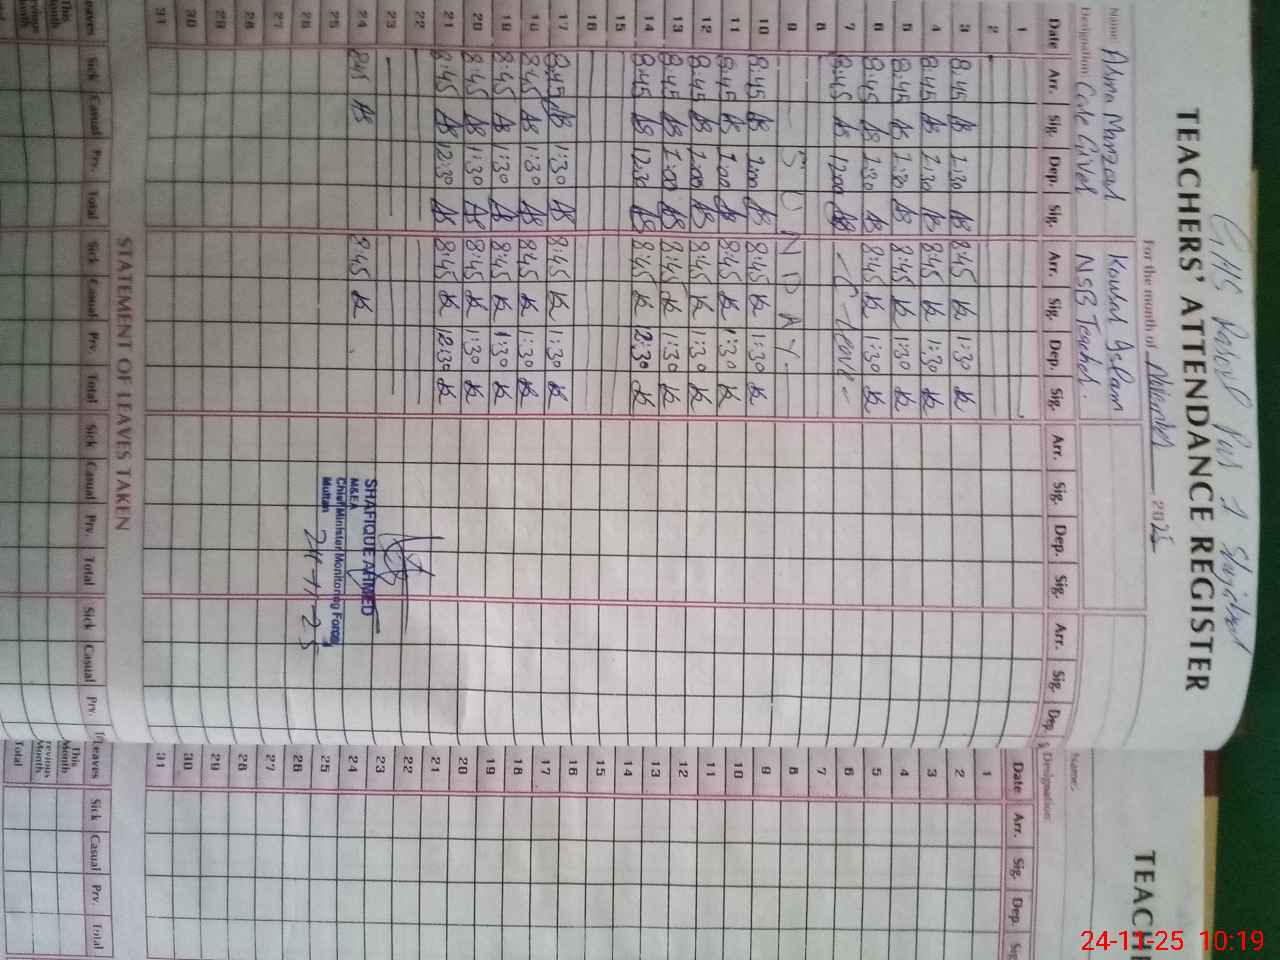 GHS Rasool Pur 1
TEACHERS' ATTENDANCE REGISTER
For the month of November 2025
Name: Asma Kausar Islam
Designation: NSB Teacher.
Date Arr. Sig. Dep. Sig. Arr. Sig. Dep. Sig. Arr. Sig. Dep. Sig. Arr. Sig. Dep.
1
2
3 8:45 AB 1:30 AB 8:45 K 1:30 K
4 8:45 AB 1:30 AB 8:45 K 1:30 K
5 8:45 AB 1:30 AB 8:45 K 1:30 K
6 8:45 AB 1:30 AB 8:45 K 1:30 K
7 8:45 AB 1200 AB - C-leave -
8
9 - S U N D A Y.
10 8:45 AB 2:00 AB 8:45 K 1:30 K
11 8:45 AB 2:00 AB 8:45 K 1:30 K
12 8:45 AB 2:00 AB 8:45 K 1:30 K
13 8:45 AB 2:00 AB 8:45 K 1:30 K
14 8:45 AB 12:30 AB 8:45 K 12:30 K
15
16
17 8:45 AB 1:30 AB 8:45 K 1:30 K
18 8:45 AB 1:30 AB 8:45 K 1:30 K
19 8:45 AB 1:30 AB 8:45 K 1:30 K
20 8:45 AB 1:30 AB 8:45 K 1:30 K
21 8:45 AB 12:30 AB 8:45 K 12:30 K
22
23
24 845 AB 8:45 K
25
26
27
28
29
30
31
SHAFIQUE AHMED
M&EA
Chief Minister Monitoring Force
Multan
24-11-25
STATEMENT OF LEAVES TAKEN
Leaves Sick Casual Prv. Total Sick Casual Prv. Total Sick Casual Prv. Total Sick Casual Prv.
This Month
TEACH
Name:
Designation:
Date Arr. Sig. Dep. Sig
1
2
3
4
5
6
7
8
9
10
11
12
13
14
15
16
17
18
19
20
21
22
23
24
25
26
27
28
29
30
31
Leaves Sick Casual Prv. Total
This Month
Previous Month
Total
24-11-25 10:19